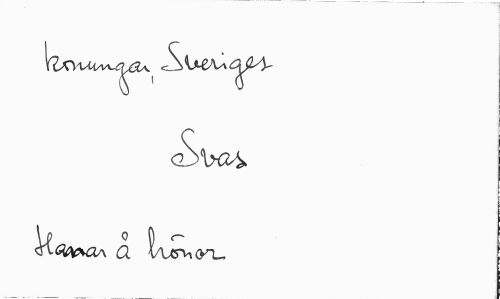 konungar, Sveriges
Svas
Hanar å hönor